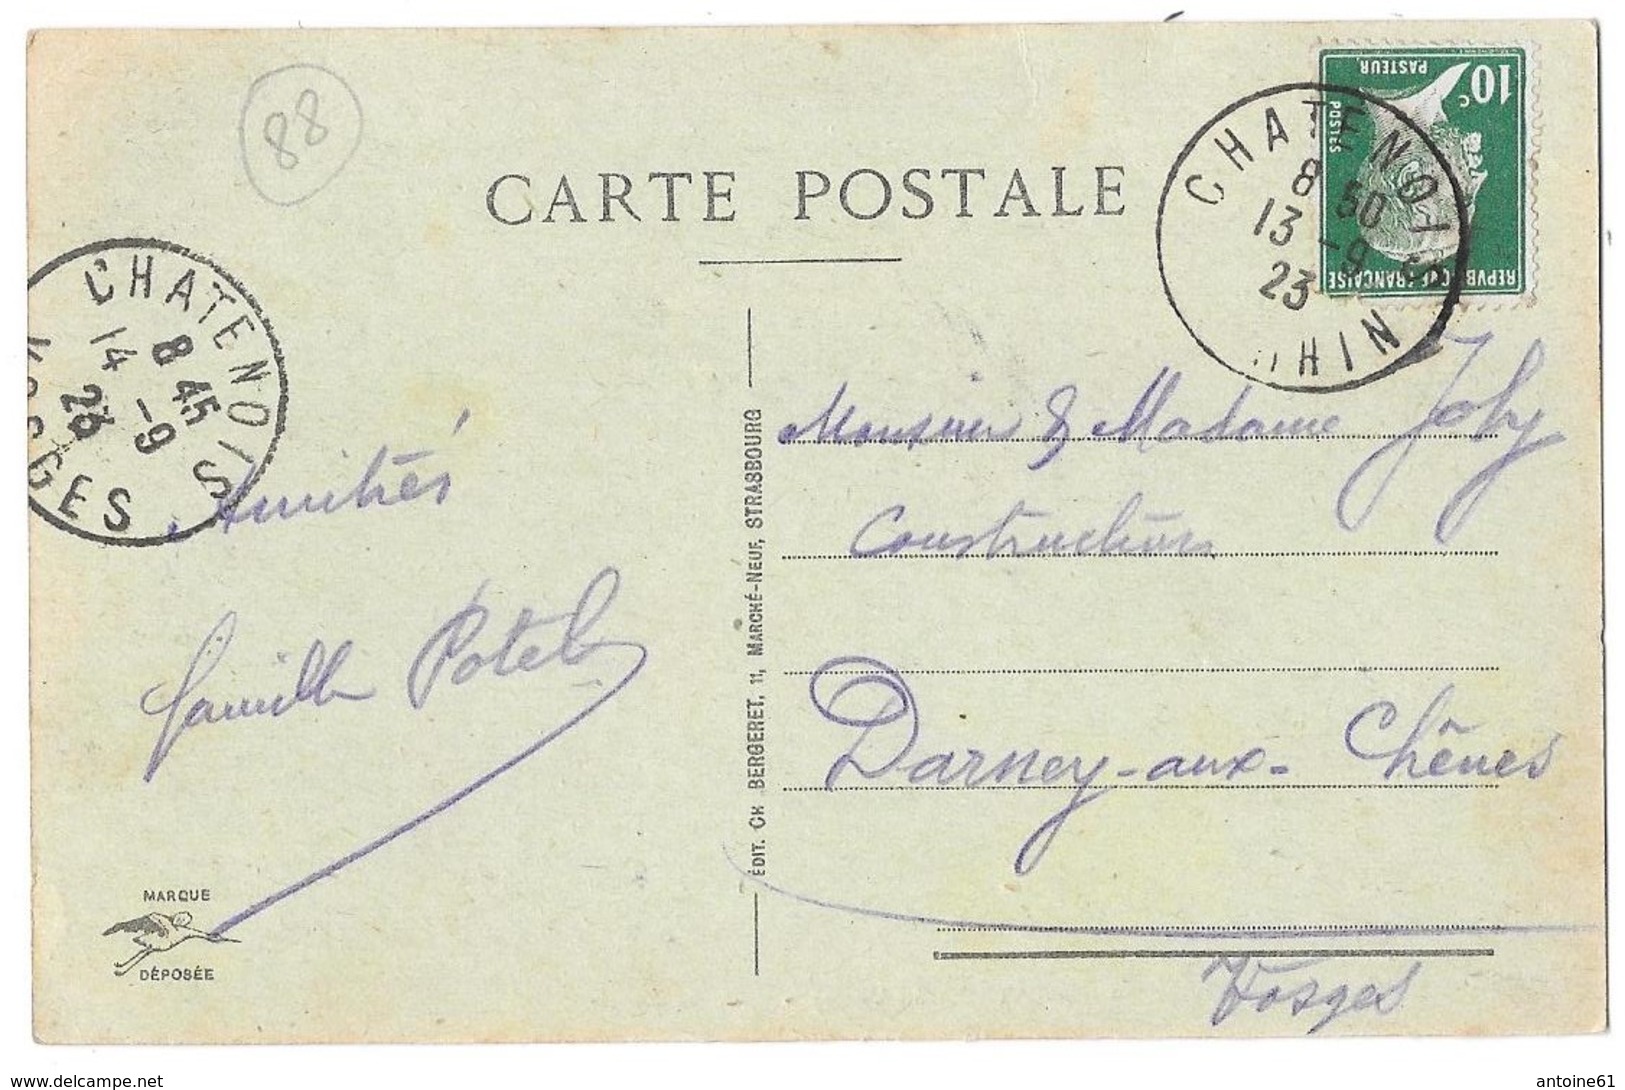 88
CARTE POSTALE
10c
PASTEUR
POSTES
REPVBLIQVE FRANÇAISE
CHATENOIS
8 50
13 -9
23
RHIN
CHATENOIS
8 45
14 -9
23
VOSGES
Amitiés
famille Potel
MARQUE
DÉPOSÉE
ÉDIT. CH BERGERET, 11, MARCHÉ-NEUF, STRASBOURG
Monsieur & Madame Joly
Constructions
Darney-aux-Chênes
Vosges
www.delcampe.net
antoine61